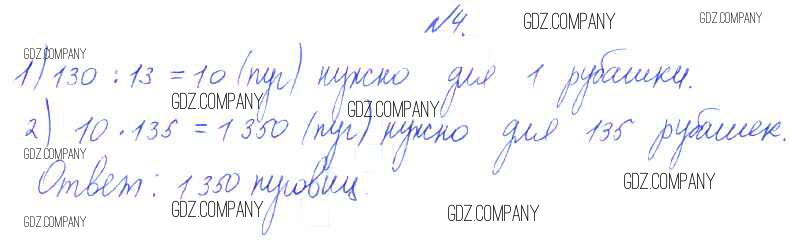 №4. GDZ.COMPANY GDZ.COMPANY
GDZ.COMPANY
1) 130 : 13 = 10 (пуг) нужно для 1 рубашки.
GDZ.COMPANY GDZ.COMPANY
2) 10 · 135 = 1350 (пуг) нужно для 135 рубашек.
GDZ.COMPANY
Ответ: 1350 пуговиц.
GDZ.COMPANY
GDZ.COMPANY GDZ.COMPANY GDZ.COMPANY